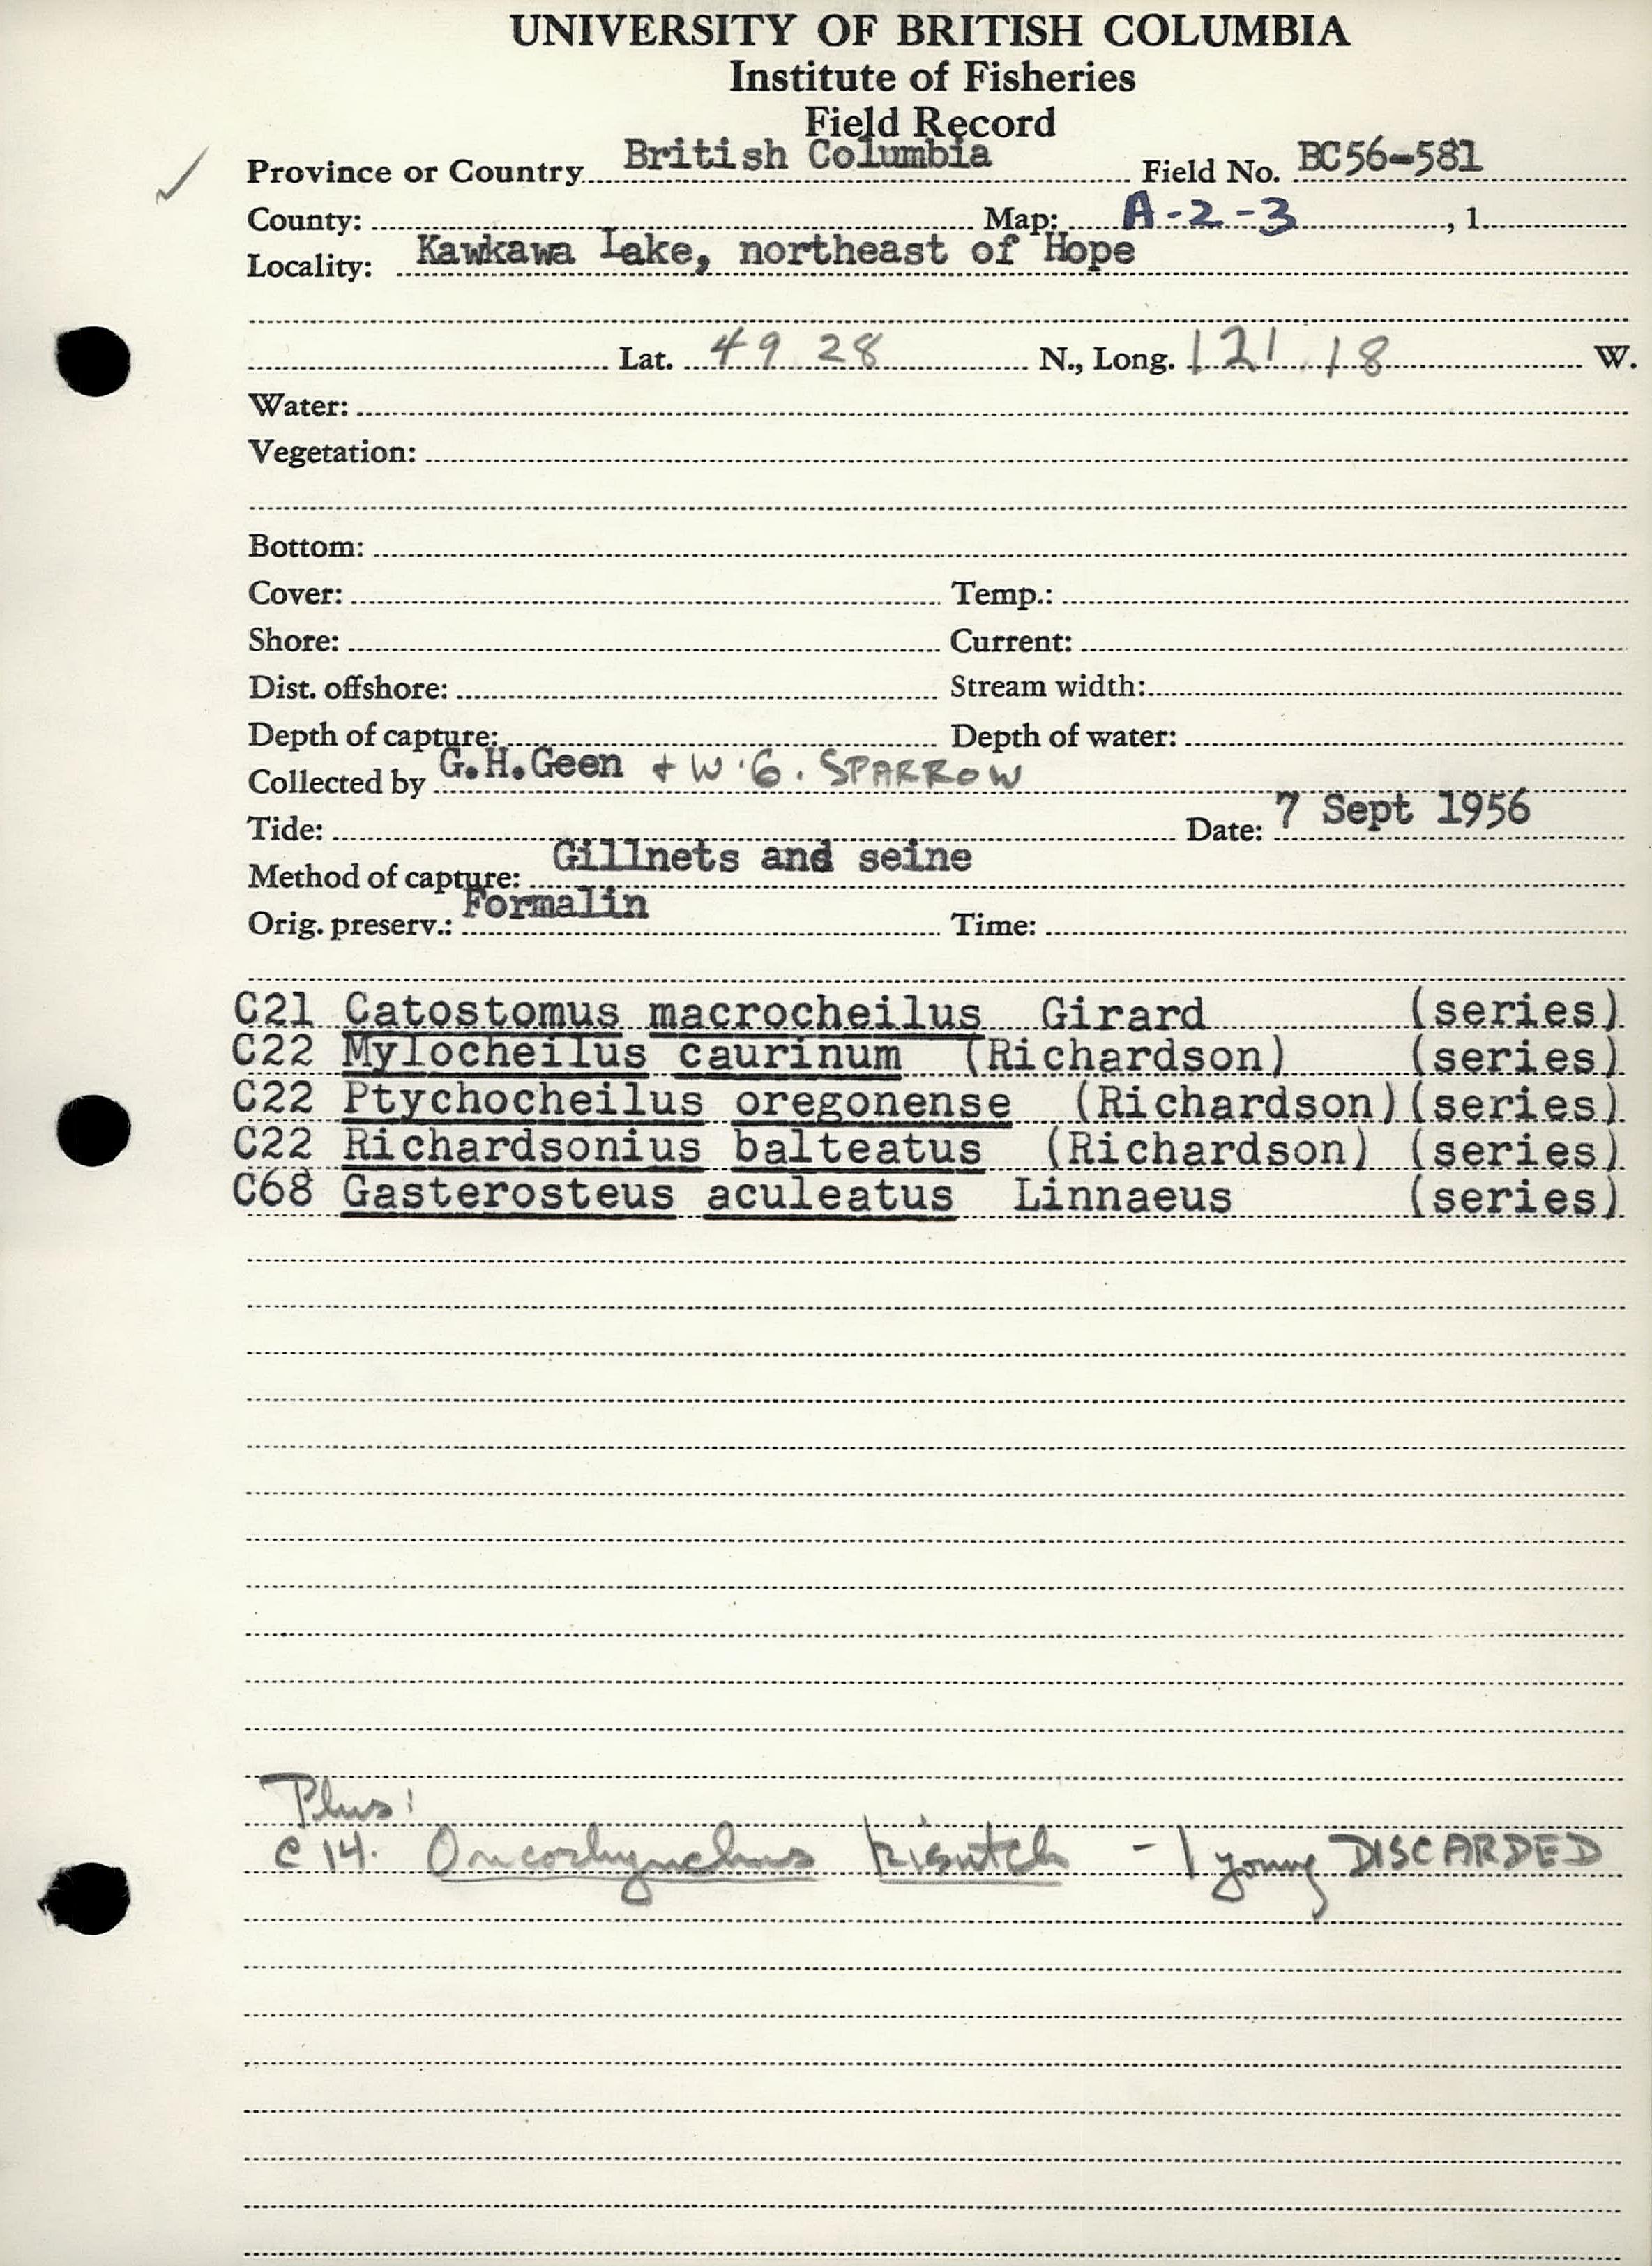 UNIVERSITY OF BRITISH COLUMBIA
Institute of Fisheries
Field Record
✓ Province or Country British Columbia Field No. BC56-581
County: Map: A-2-3, 1
Locality: Kawkawa Lake, northeast of Hope
Lat. 49 28 N., Long. 121 18 W.
Water:
Vegetation:
Bottom:
Cover: Temp.:
Shore: Current:
Dist. offshore: Stream width:
Depth of capture: Depth of water:
Collected by G.H.Geen + W.G. SPARROW
Tide: Date: 7 Sept 1956
Method of capture: Gillnets and seine
Orig. preserv.: Formalin Time:
C21 Catostomus macrocheilus Girard (series)
C22 Mylocheilus caurinum (Richardson) (series)
C22 Ptychocheilus oregonense (Richardson)(series)
C22 Richardsonius balteatus (Richardson) (series)
C68 Gasterosteus aculeatus Linnaeus (series)
Plus:
C 14. Oncorhynchus kisutch - 1 young DISCARDED